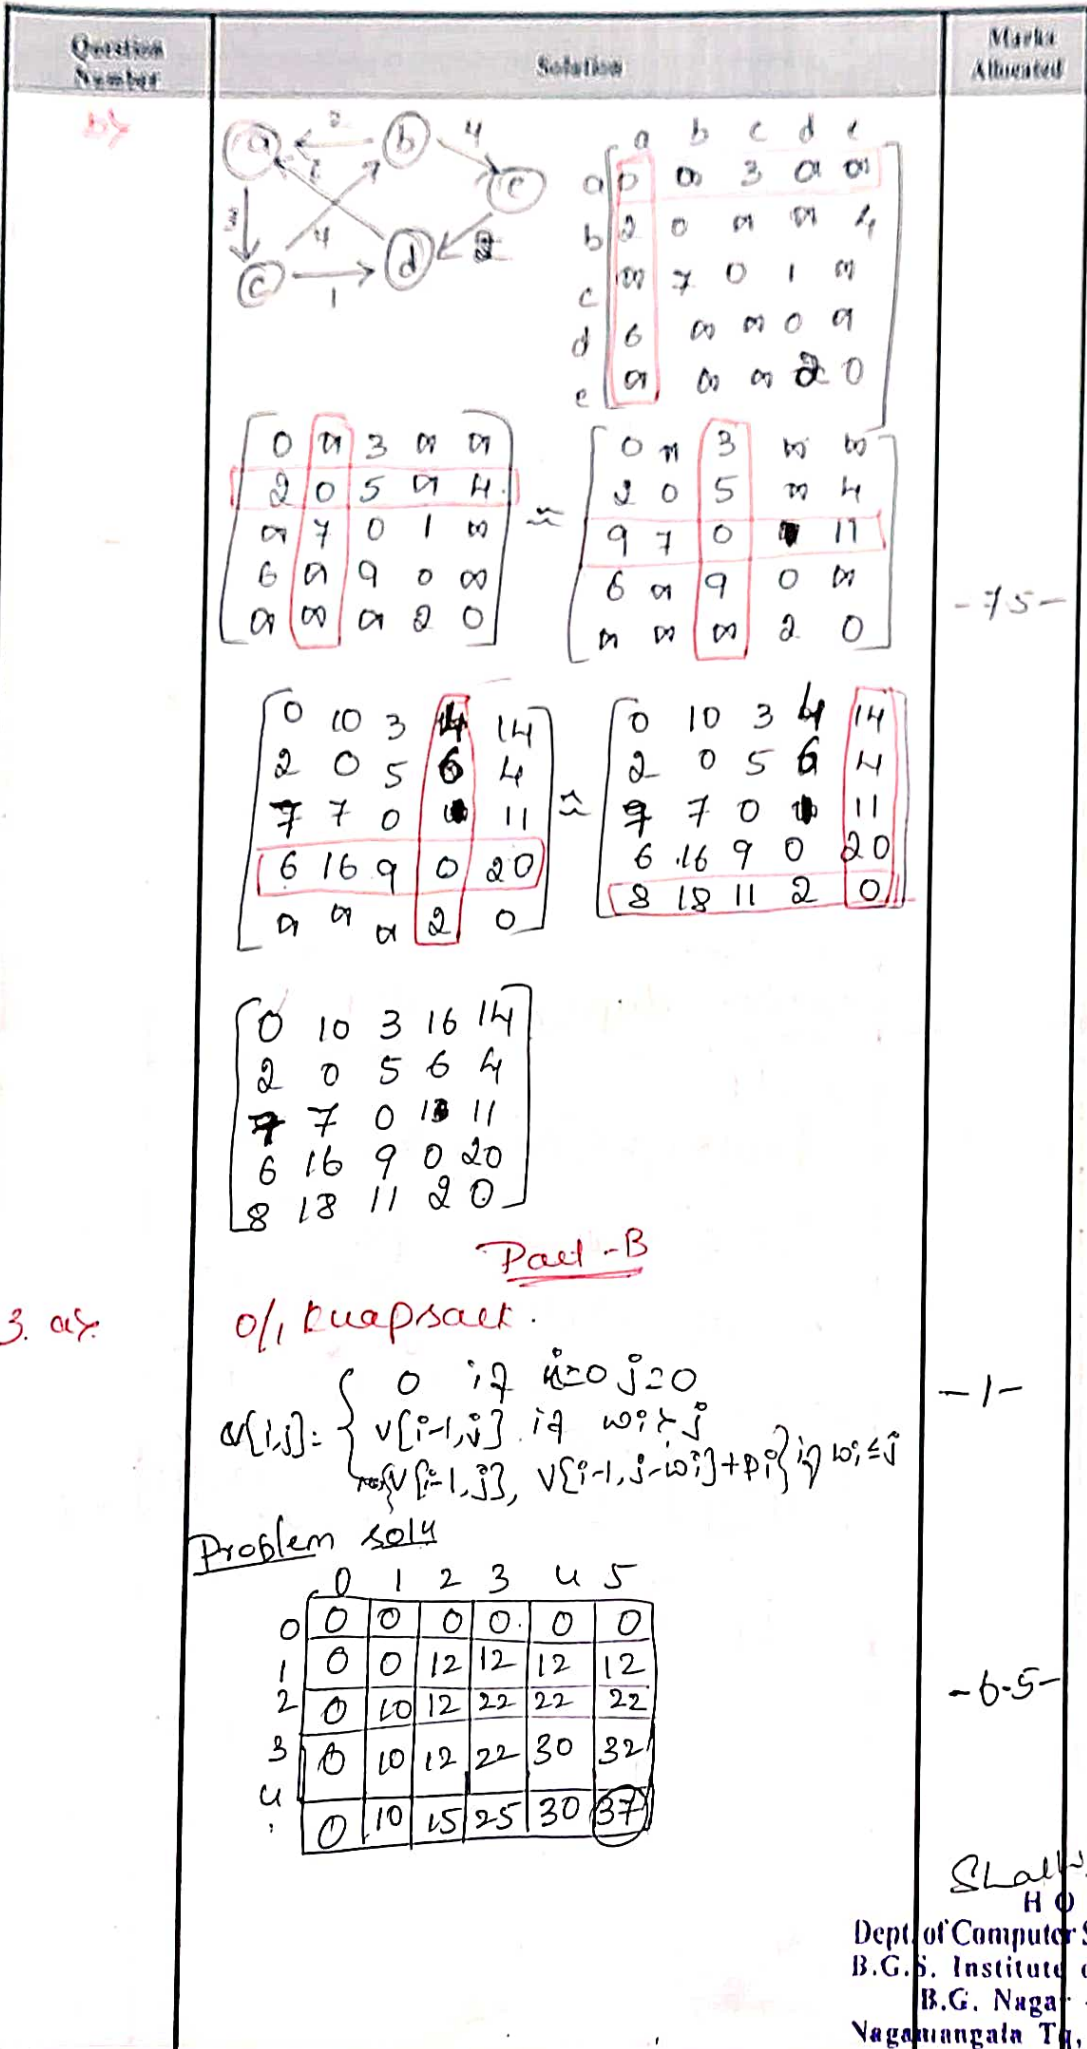 Question Number
Solution
Marks Allocated
b>
a 2 b 4 e
3 7 4 2
c 1 d
a b c d e
a 0 ∞ 3 ∞ ∞
b 2 0 ∞ ∞ 4
c ∞ 7 0 1 ∞
d 6 ∞ ∞ 0 ∞
e ∞ ∞ ∞ 2 0
0 ∞ 3 ∞ ∞
2 0 5 ∞ 4
∞ 7 0 1 ∞
6 ∞ 9 0 ∞
∞ ∞ ∞ 2 0
≈
0 ∞ 3 ∞ ∞
2 0 5 ∞ 4
9 7 0 11
6 ∞ 9 0 ∞
∞ ∞ ∞ 2 0
-75-
0 10 3 4 14
2 0 5 6 4
7 7 0 11
6 16 9 0 20
∞ ∞ ∞ 2 0
≈
0 10 3 4 14
2 0 5 6 4
9 7 0 11
6 16 9 0 20
8 18 11 2 0
0 10 3 16 14
2 0 5 6 4
7 7 0 11
6 16 9 0 20
8 18 11 2 0
Part-B
3. a>.
0/1 knapsack.
V[i,j]= { 0 if i=0 j=0
V[i-1,j] if wi>j
max{V[i-1,j], V[i-1,j-wi]+Pi} if wi≤j
-1-
Problem soln
0 1 2 3 4 5
0 0 0 0 0 0 0
1 0 0 12 12 12 12
2 0 10 12 22 22 22
3 0 10 12 22 30 32
4 0 10 15 25 30 37
-6.5-
H O
Dept. of Computer S
B.G.S. Institute o
B.G. Naga
Nagamangala Tq,